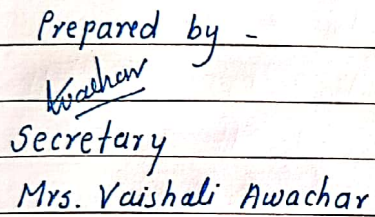 Prepared by -
Secretary
Mrs. Vaishali Awachar